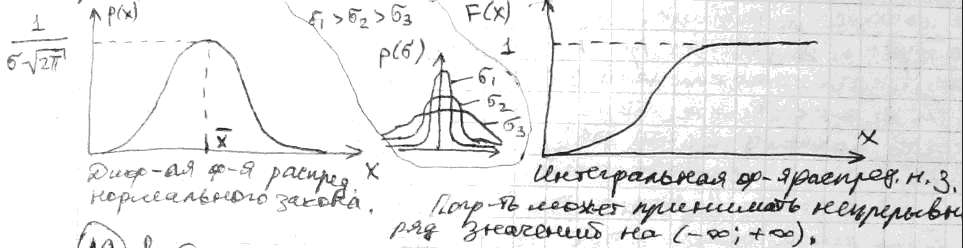 1
σ√2π
p(x)
x̄
x
Диф-ая ф-я распред.
нормального закона.
σ₁ > σ₂ > σ₃
p(σ)
σ₁
σ₂
σ₃
F(x)
1
x
Интегральная ф-я распред. н. з.
Погр-ть может принимать непрерывн
ряд значений на (-∞; +∞).